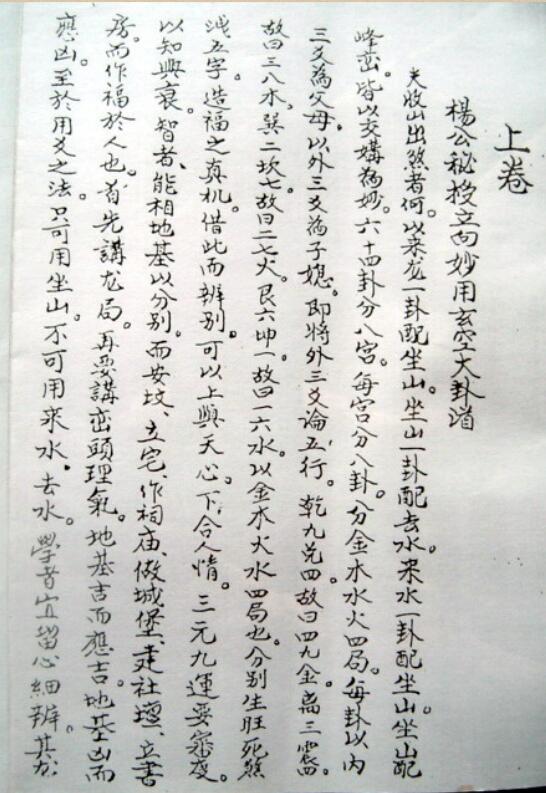 上卷
楊公秘授立向妙用玄空大卦消
夫收山出煞者何。以来龙一卦配坐山。坐山一卦配去水。来水一卦配坐山。坐山配
峰峦。皆以交媾為妙。六十四卦分八宫。每宫分八卦。分金木水火四局。每卦以内
三爻為父母。以外三爻為子媳。即將外三爻論五行。乾九兑四。故曰四九金。离三震八。
故曰三八木。巽二坎七。故曰二七火。艮六坤一。故曰一六水。以金木火水四局也。分别生旺死煞
浅五字。造福之真机。借此而辨别。可以上與天心。下合人情。三元九運要窥度。
以知興衰。智者、能相地基以分别。而安坟、立宅、作祠庙、做城堡、建社壇、立書
房。而作福於人也。首先講龙局。再要講峦頭理氣。地基吉而應吉。地基凶而
應凶。至於用爻之法。只可用坐山。不可用来水。去水。學者宜留心細辨。其龙